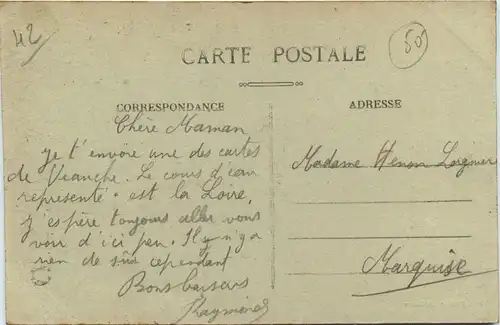 42
50
CARTE POSTALE
CORRESPONDANCE
ADRESSE
Chère Maman
je t'envoie une des cartes
de Vianche. Le cours d'eau
représenté est la Loire,
j'espère toujours aller vous
voir d'ici peu. Il n'y a
rien de sûr cependant
Bons baisers
Raymond
Madame Henon
Marquise